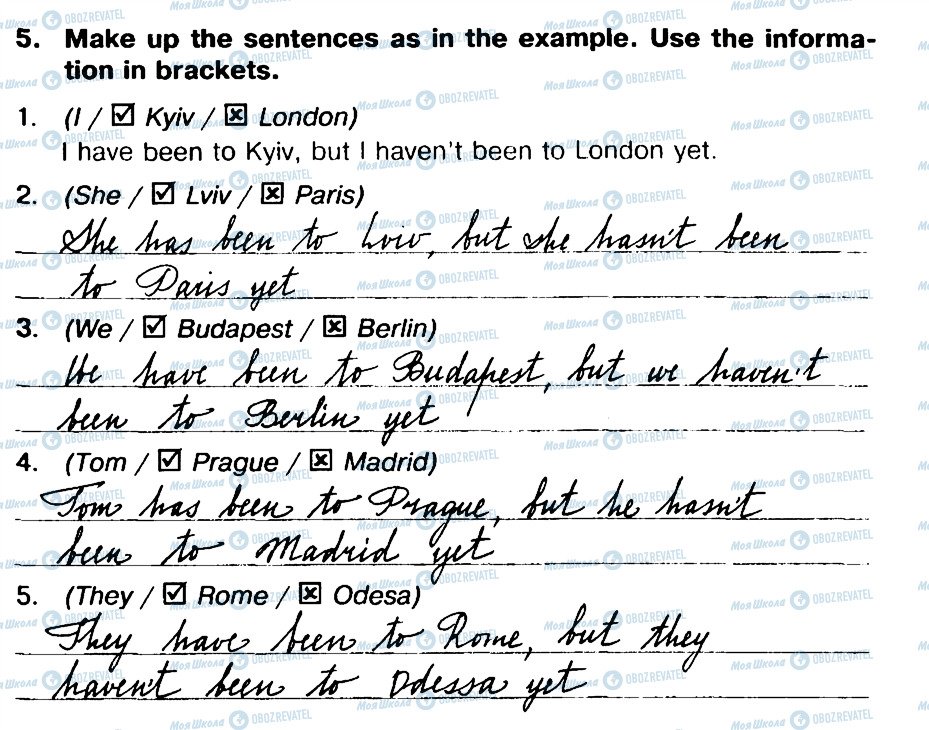 5. Make up the sentences as in the example. Use the informa-
tion in brackets.
1. (I / ☑ Kyiv / ☒ London)
I have been to Kyiv, but I haven't been to London yet.
2. (She / ☑ Lviv / ☒ Paris)
She has been to Lviv, but she hasn't been
to Paris yet
3. (We / ☑ Budapest / ☒ Berlin)
We have been to Budapest, but we haven't
been to Berlin yet
4. (Tom / ☑ Prague / ☒ Madrid)
Tom has been to Prague, but he hasn't
been to Madrid yet
5. (They / ☑ Rome / ☒ Odesa)
They have been to Rome, but they
haven't been to Odessa yet
МояШкола OBOZREVATEL